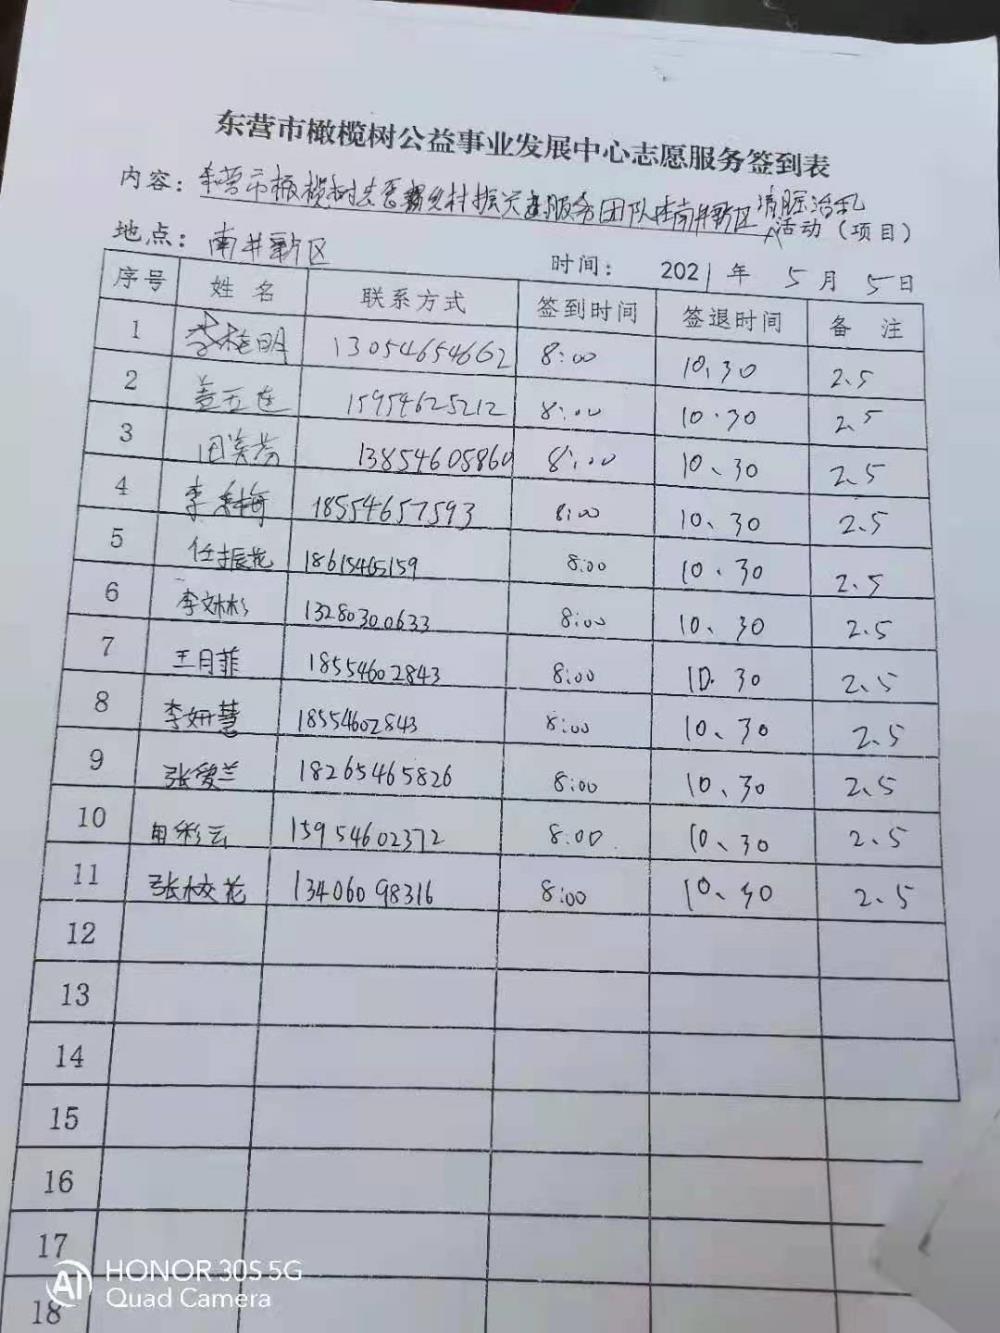 东营市橄榄树公益事业发展中心志愿服务签到表
内容：东营市橄榄树志愿乡村振兴服务团队在南井新区清脏治乱活动（项目）
地点：南井新区 时间：2021年5月5日
序号 姓名 联系方式 签到时间 签退时间 备注
1 李桂明 13054654662 8:00 10.30 2.5
2 盖玉莲 15954625212 8:00 10.30 2.5
3 田美芬 13854605860 8:00 10、30 2.5
4 李梅 18554657593 8:00 10、30 2.5
5 任振花 18615465159 8:00 10.30 2.5
6 李林彬 13280300633 8:00 10、30 2.5
7 王月菲 18554602843 8:00 10.30 2.5
8 李妍慧 18554602843 8:00 10、30 2.5
9 张爱兰 18265465826 8:00 10、30 2.5
10 田彩云 15954602372 8:00 10、30 2.5
11 张校花 13406098316 8:00 10、30 2.5
12
13
14
15
16
17
18
AI HONOR 30S 5G
Quad Camera